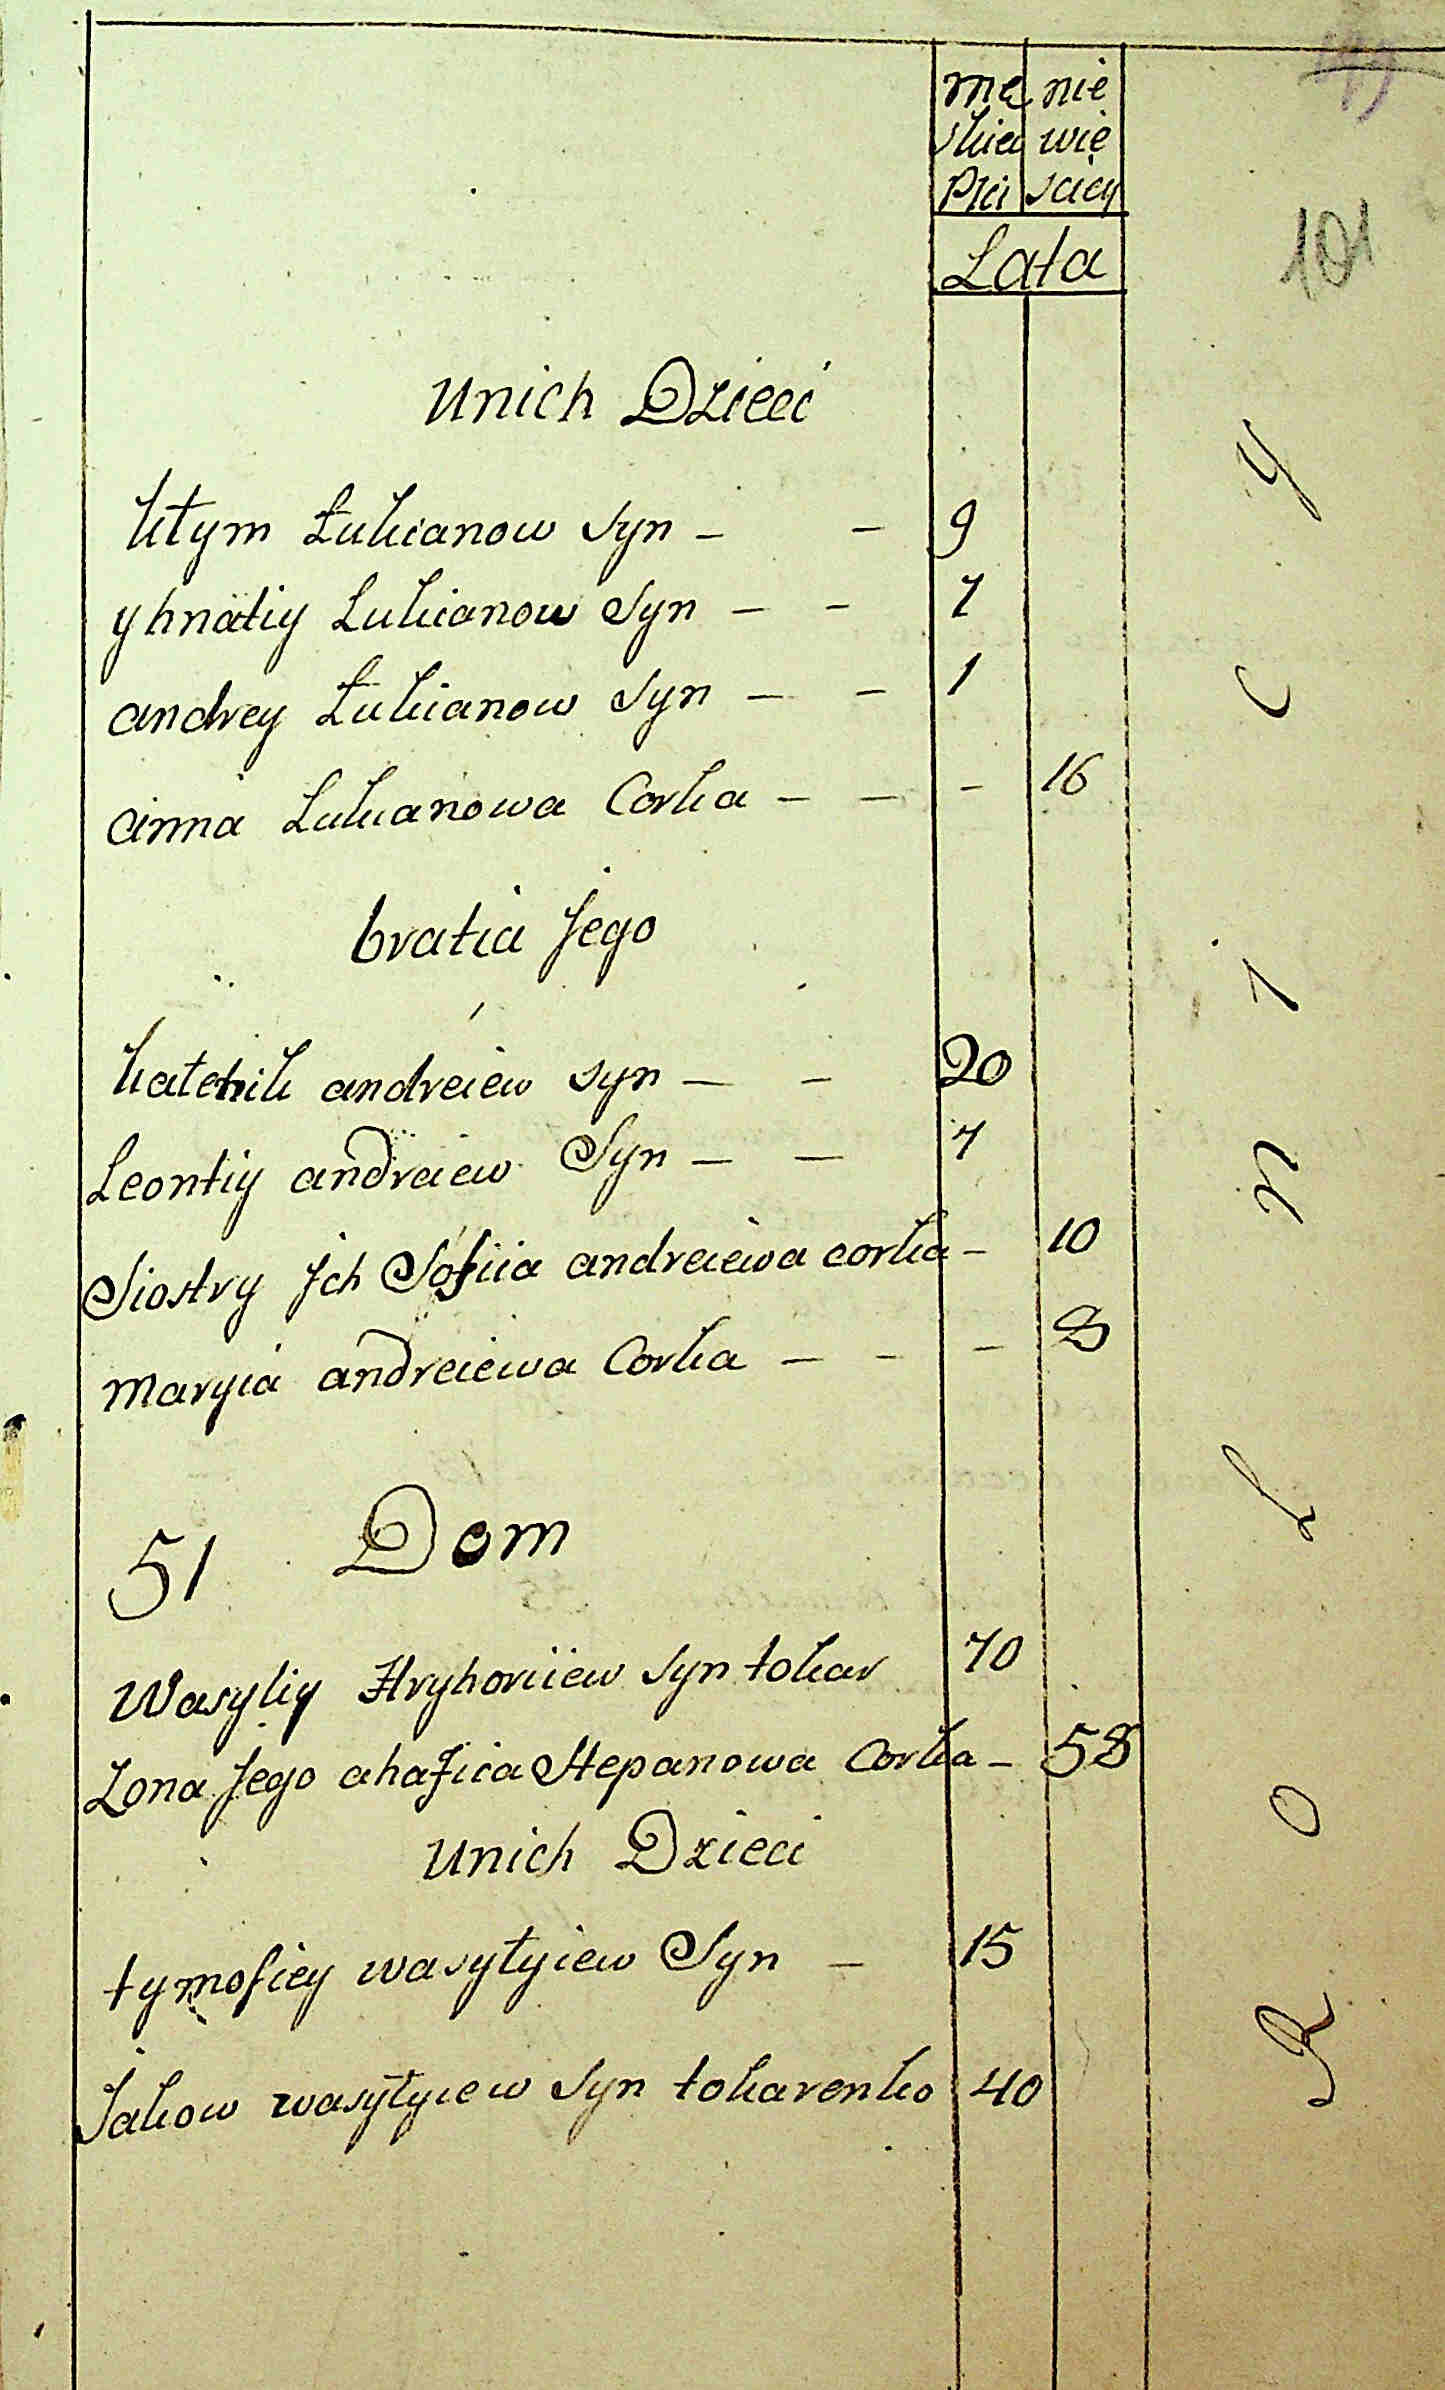 mę nie
skiei wie
Płci sciey
Lata
101
Unich Dzieci
kłym Łukianow Syn — — 9
yhnatiy Lukianow Syn — — 7
andrey Łukianow Syn — — 1
anna Lukianowa Corka — — — 16
bratia Jego
andreiew syn — — 20
Leontiy andreiew Syn — — 7
Siostry Jch Sofiia andreiewa corka — 10
maryia andreiewa Corka — — — 8
51 Dom
Wasyliy Hryhoriiew Syn tokar 70
Zona Jego ahafiia Stepanowa Corka — 58
Unich Dzieci
tymofiey wasyłyiew Syn — 15
Jakow wasyłyiew Syn tokarenko 40